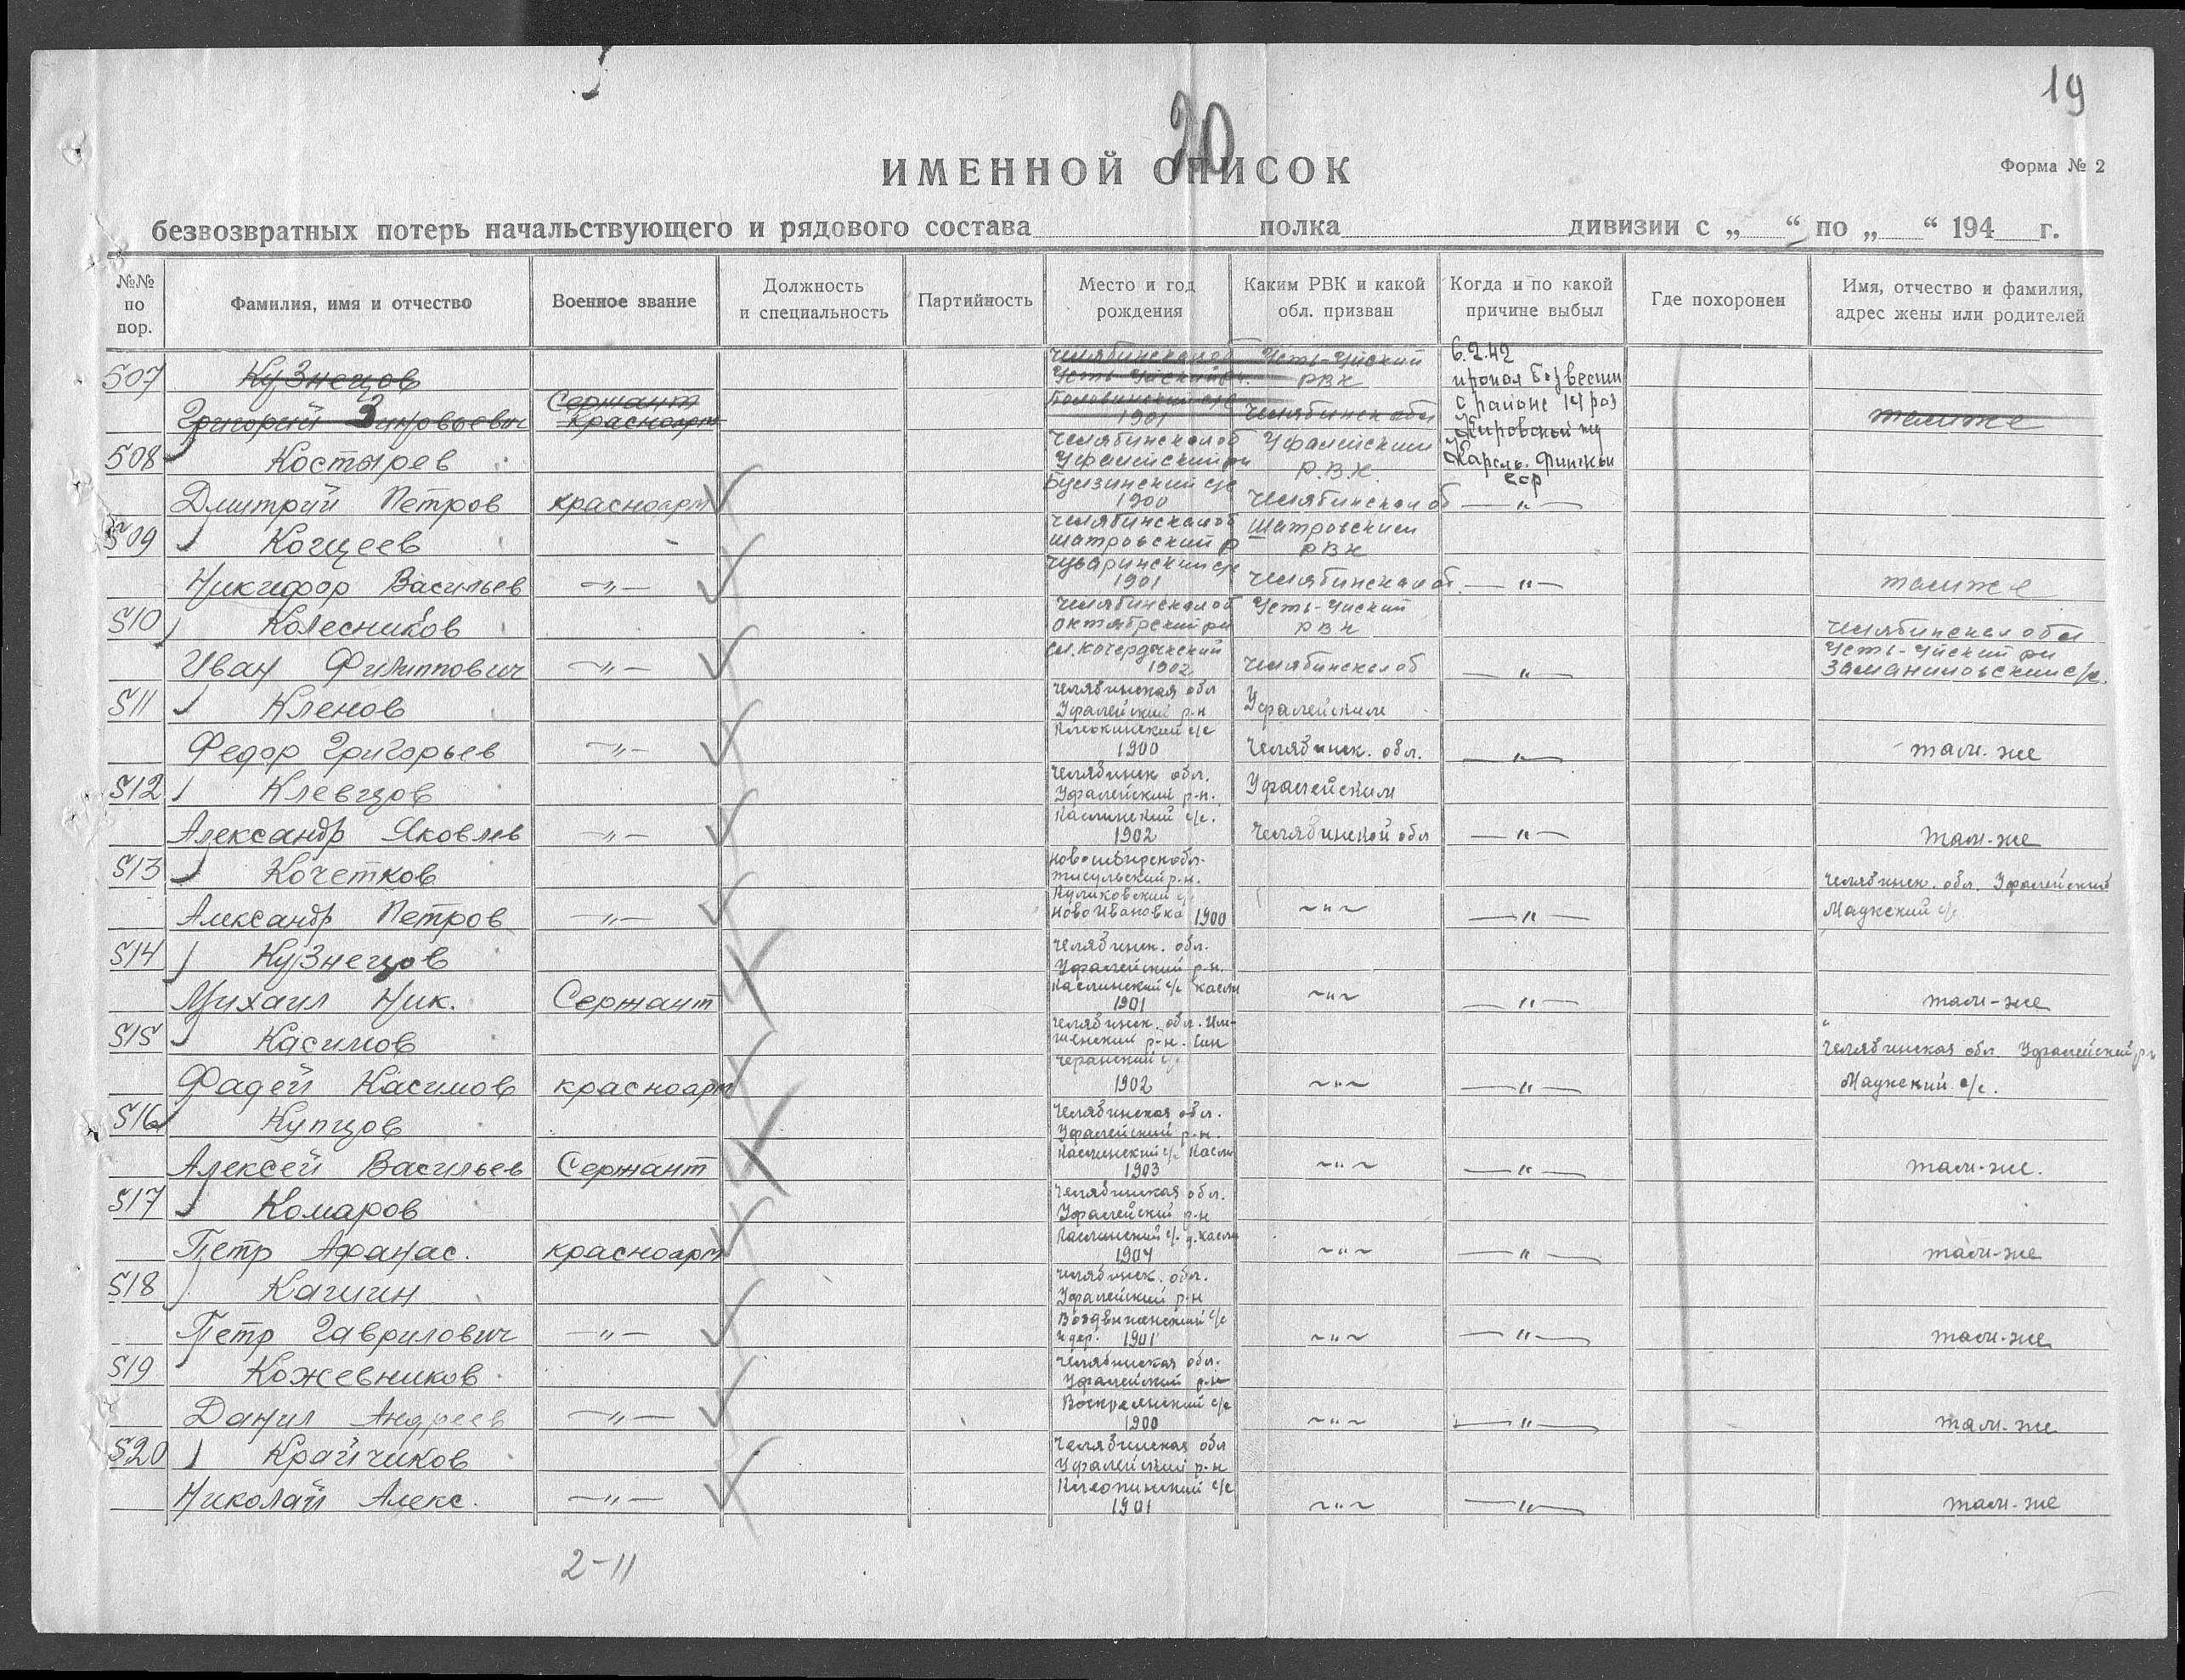 19
20
ИМЕННОЙ СПИСОК
Форма № 2
безвозвратных потерь начальствующего и рядового состава полка дивизии с „ “ по „ “ 194 г.
№№ по пор.
Фамилия, имя и отчество
Военное звание
Должность и специальность
Партийность
Место и год рождения
Каким РВК и какой обл. призван
Когда и по какой причине выбыл
Где похоронен
Имя, отчество и фамилия, адрес жены или родителей
507 Кузнецов Челябинская об Усть-Уйский 6.2.42
Усть-Уйский РВК пропал безвести
Григорий Зиновьевич Сержант красноарм 1901 Челябинск обл в районе 14 раз там же
Кировской жд
508 Костырев Челябинской об Уфалейским
Уфалейский рн Р.В.К. Карело-Финской
ССР
Дмитрий Петров красноарм 1900 Челябинской об —"—
509 Кощеев Челябинской об Шатровским
Шатровский р РВК
Никифор Васильев —"— 1901 Челябинской об —"— там же
510 Колесников Челябинской об Усть-Уйский
Октябрский рн РВК Челябинской обл
Усть-Уйский рн
Иван Филиппович —"— 1902 Челябинской об —"—
511 Кленов Челябинская обл
Уфалейский р-н Уфалейским
Федор Григорьев —"— 1900 Челябинск. обл. —"— там-же
512 Клевцов Челябинск обл.
Уфалейский р-н. Уфалейским
Каслинский с/с.
Александр Яковлев —"— 1902 Челябинской обл —"— там-же
513 Кочетков Новосибирск обл.
Тисульский р-н. Челябинск. обл. Уфалейский
Куликовский с/с
Александр Петров —"— Ново Ивановка 1900 —"— —"— Маукский с/с
514 Кузнецов Челябинск. обл.
Уфалейский р-н.
Каслинский с/с Касли
Михаил Ник. Сержант 1901 —"— —"— там-же
515 Касимов Челябинск. обл.
Челябинская обл Уфалейский р-н
Фадей Касимов красноарм 1902 —"— —"— Маукский с/с.
516 Купцов Челябинская обл.
Уфалейский р-н.
Каслинский с/с Касли
Алексей Васильев Сержант 1903 —"— —"— там-же.
517 Комаров Челябинская обл.
Уфалейский р-н
Каслинский с/с г. Касли
Петр Афанас. красноарм 1904 —"— —"— там-же
518 Кашин Челябинск. обл.
Уфалейский р-н
Воздвиженский с/с
Петр Гаврилович —"— 1901 —"— —"— там-же
519 Кожевников Челябинская обл.
Уфалейский р-н
Воскресенский с/с
Данил Андреев —"— 1900 —"— —"— там-же
520 Крайчиков Челябинская обл
Уфалейский р-н
Николай Алекс. —"— 1901 —"— —"— там-же
2-11